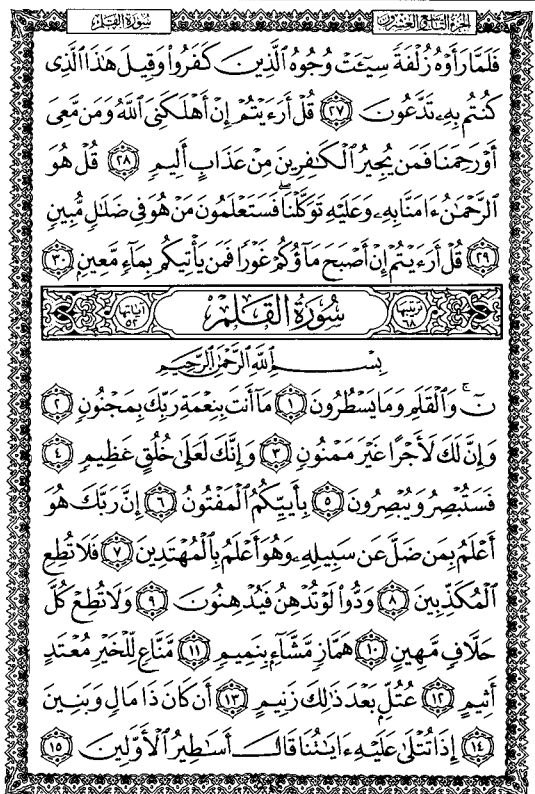 سورة القلم الجزء التاسع والعشرون
فَلَمَّا رَأَوْهُ زُلْفَةً سِيٓـَٔتْ وُجُوهُ ٱلَّذِينَ كَفَرُوا۟ وَقِيلَ هَٰذَا ٱلَّذِى
كُنتُم بِهِۦ تَدَّعُونَ ٢٧ قُلْ أَرَءَيْتُمْ إِنْ أَهْلَكَنِىَ ٱللَّهُ وَمَن مَّعِىَ
أَوْ رَحِمَنَا فَمَن يُجِيرُ ٱلْكَٰفِرِينَ مِنْ عَذَابٍ أَلِيمٍ ٢٨ قُلْ هُوَ
ٱلرَّحْمَٰنُ ءَامَنَّا بِهِۦ وَعَلَيْهِ تَوَكَّلْنَا ۖ فَسَتَعْلَمُونَ مَنْ هُوَ فِى ضَلَٰلٍ مُّبِينٍ
٢٩ قُلْ أَرَءَيْتُمْ إِنْ أَصْبَحَ مَآؤُكُمْ غَوْرًا فَمَن يَأْتِيكُم بِمَآءٍ مَّعِينٍۭ ٣٠
ترتيبها ٦٨ سُورَةُ القَلَمِ آياتها ٥٢
بِسْمِ ٱللَّهِ ٱلرَّحْمَٰنِ ٱلرَّحِيمِ
نٓ ۚ وَٱلْقَلَمِ وَمَا يَسْطُرُونَ ١ مَآ أَنتَ بِنِعْمَةِ رَبِّكَ بِمَجْنُونٍ ٢
وَإِنَّ لَكَ لَأَجْرًا غَيْرَ مَمْنُونٍ ٣ وَإِنَّكَ لَعَلَىٰ خُلُقٍ عَظِيمٍ ٤
فَسَتُبْصِرُ وَيُبْصِرُونَ ٥ بِأَييِّكُمُ ٱلْمَفْتُونُ ٦ إِنَّ رَبَّكَ هُوَ
أَعْلَمُ بِمَن ضَلَّ عَن سَبِيلِهِۦ وَهُوَ أَعْلَمُ بِٱلْمُهْتَدِينَ ٧ فَلَا تُطِعِ
ٱلْمُكَذِّبِينَ ٨ وَدُّوا۟ لَوْ تُدْهِنُ فَيُدْهِنُونَ ٩ وَلَا تُطِعْ كُلَّ
حَلَّافٍ مَّهِينٍ ١٠ هَمَّازٍ مَّشَّآءٍۭ بِنَمِيمٍ ١١ مَّنَّاعٍ لِّلْخَيْرِ مُعْتَدٍ
أَثِيمٍ ١٢ عُتُلٍّۭ بَعْدَ ذَٰلِكَ زَنِيمٍ ١٣ أَن كَانَ ذَا مَالٍ وَبَنِينَ
١٤ إِذَا تُتْلَىٰ عَلَيْهِ ءَايَٰتُنَا قَالَ أَسَٰطِيرُ ٱلْأَوَّلِينَ ١٥